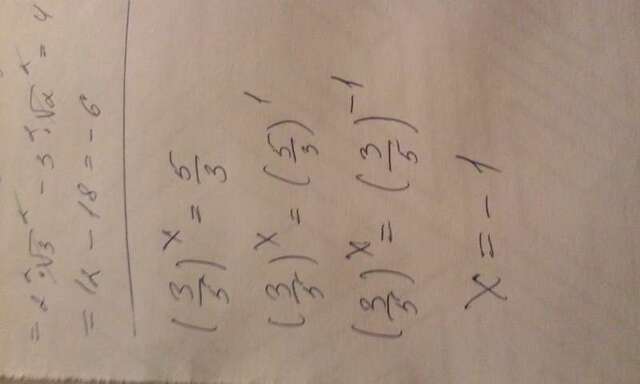 = 2² · √3² - 3² · √2² = 4
= 12 - 18 = - 6
(3/5)ˣ = 5/3
(3/5)ˣ = (5/3)¹
(3/5)ˣ = (3/5)⁻¹
x = - 1